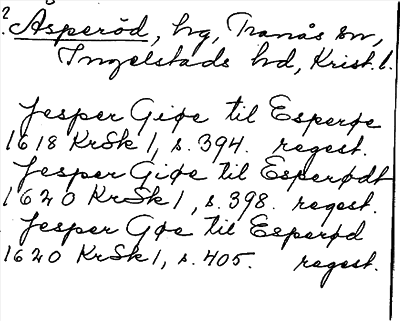 ? Asperöd, hg, Tranås sn,
Ingelstads hd, Krist. l.
Jesper Giøe til Esperøe
1618 KrSk 1, s. 394. regest.
Jesper Giøe til Esperødt
1620 KrSk 1, s. 398. regest.
Jesper Gøe til Esperød
1620 KrSk 1, s. 405. regest.